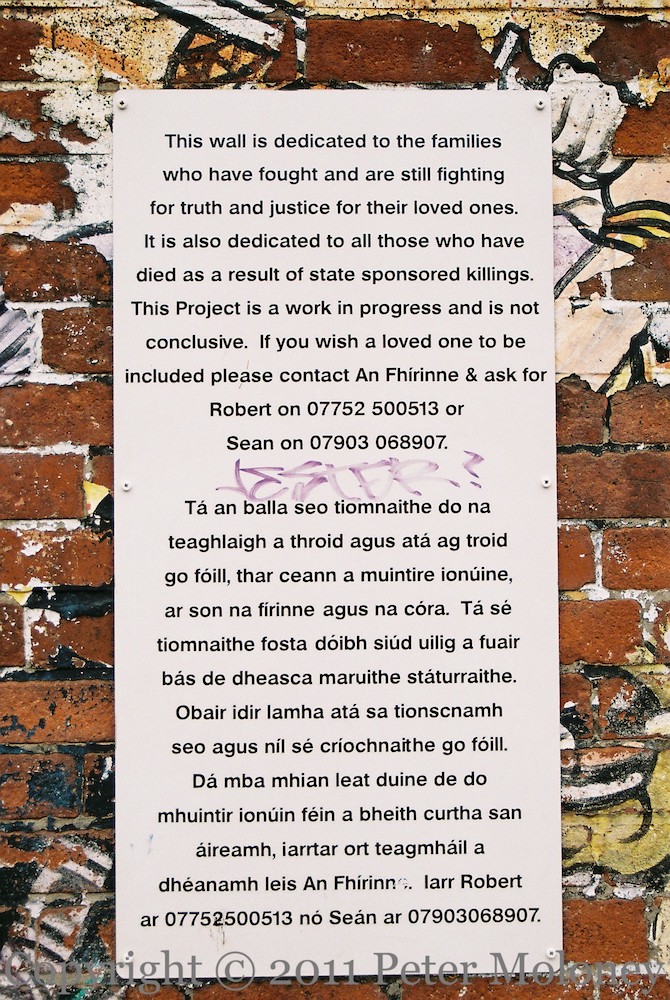 This wall is dedicated to the families
who have fought and are still fighting
for truth and justice for their loved ones.
It is also dedicated to all those who have
died as a result of state sponsored killings.
This Project is a work in progress and is not
conclusive. If you wish a loved one to be
included please contact An Fhírinne & ask for
Robert on 07752 500513 or
Sean on 07903 068907.
Tá an balla seo tiomnaithe do na
teaghlaigh a throid agus atá ag troid
go fóill, thar ceann a muintire ionúine,
ar son na fírinne agus na córa. Tá sé
tiomnaithe fosta dóibh siúd uilig a fuair
bás de dheasca maruithe státurraithe.
Obair idir lamha atá sa tionscnamh
seo agus níl sé críochnaithe go fóill.
Dá mba mhian leat duine de do
mhuintir ionúin féin a bheith curtha san
áireamh, iarrtar ort teagmháil a
dhéanamh leis An Fhírinne. Iarr Robert
ar 07752500513 nó Seán ar 07903068907.
Copyright © 2011 Peter Moloney